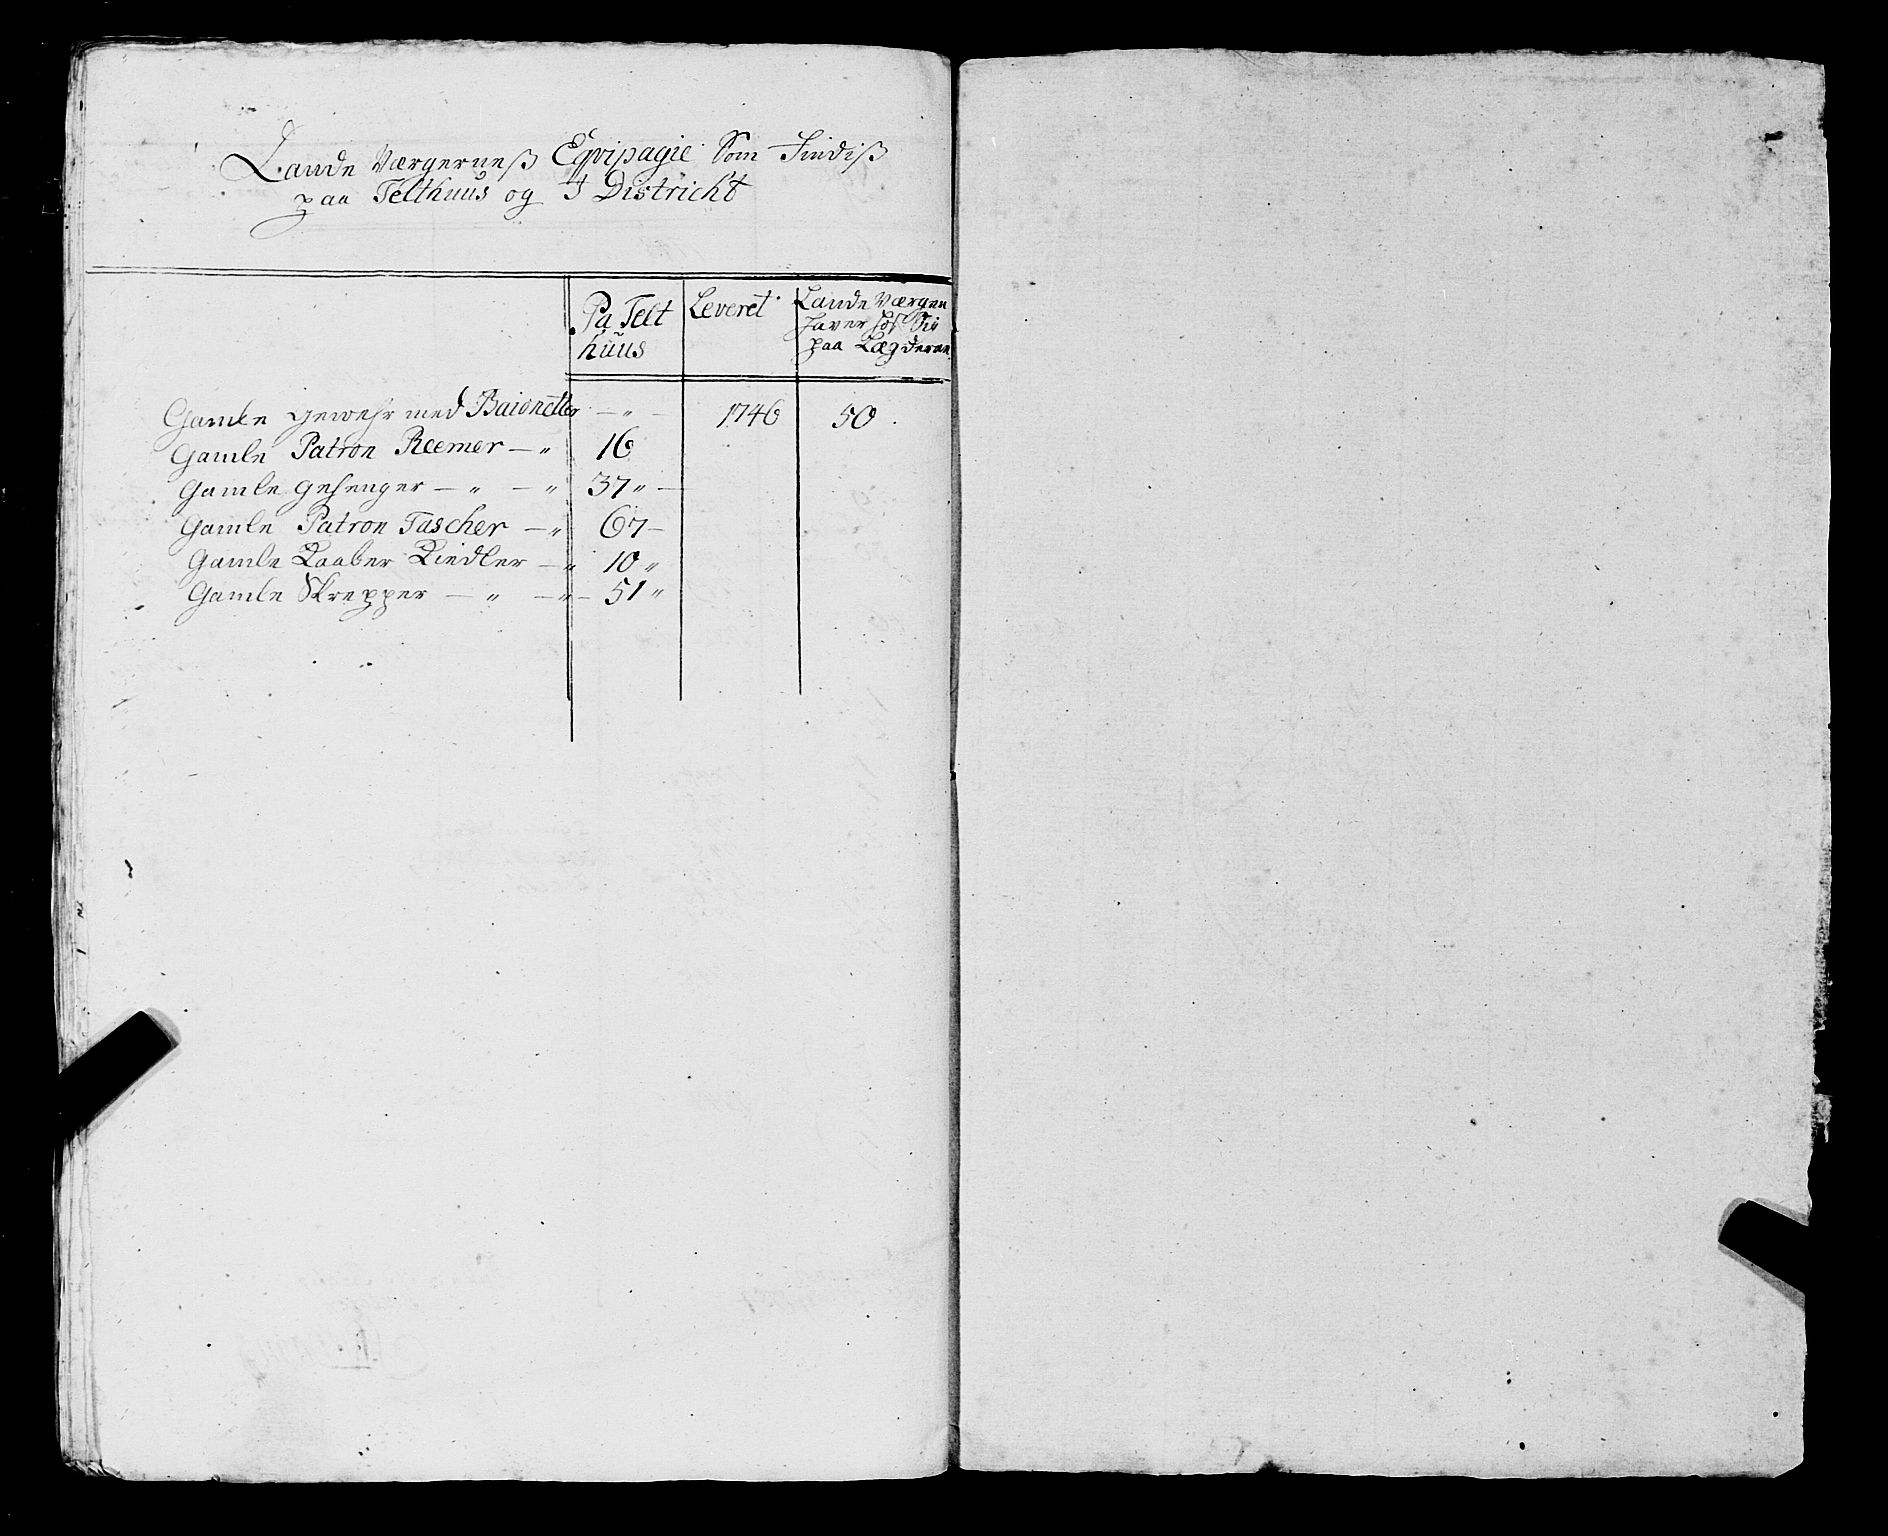 Lande Værgerneß Eqvipagie Som Findiß
paa Telthuus og I Districht
Pa Telt huus
Leveret
Lande Værgen haver hos Sig paa Lægderne
Gamle Gewehr med Baionetter — " — 1746 50
Gamle Patron Reemer — " 16
Gamle Gehenger — " — " 37 " —
Gamle Patron Tascher — " 67 —
Gamle Kaaber Kiedler — " 10 "
Gamle Skrepper — " — " — 51 "